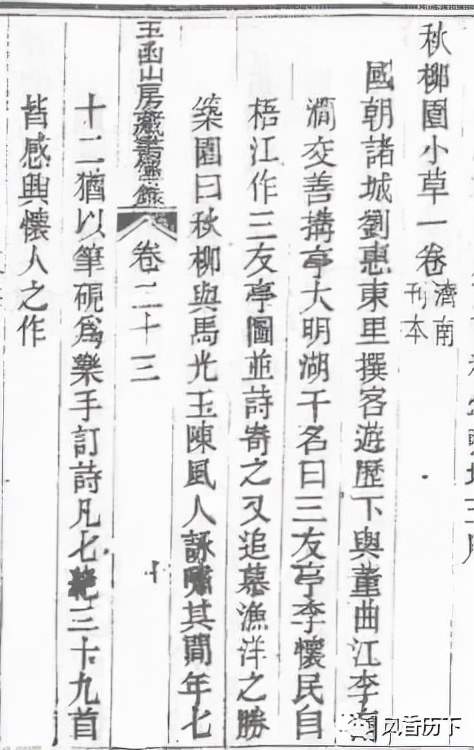 秋柳園小草一卷 濟南刊本
國朝諸城劉惠東里撰客遊歷下與董曲江李南
澗交善搆亭大明湖干名曰三友亭李懷民自
梧江作三友亭圖並詩寄之又追慕漁洋之勝
築園曰秋柳與馬光玉陳風人詠嘯其間年七
玉函山房藏書簿錄 卷二十三 十
十二猶以筆硯爲樂手訂詩凡七三十九首
皆感興懷人之作
风香历下